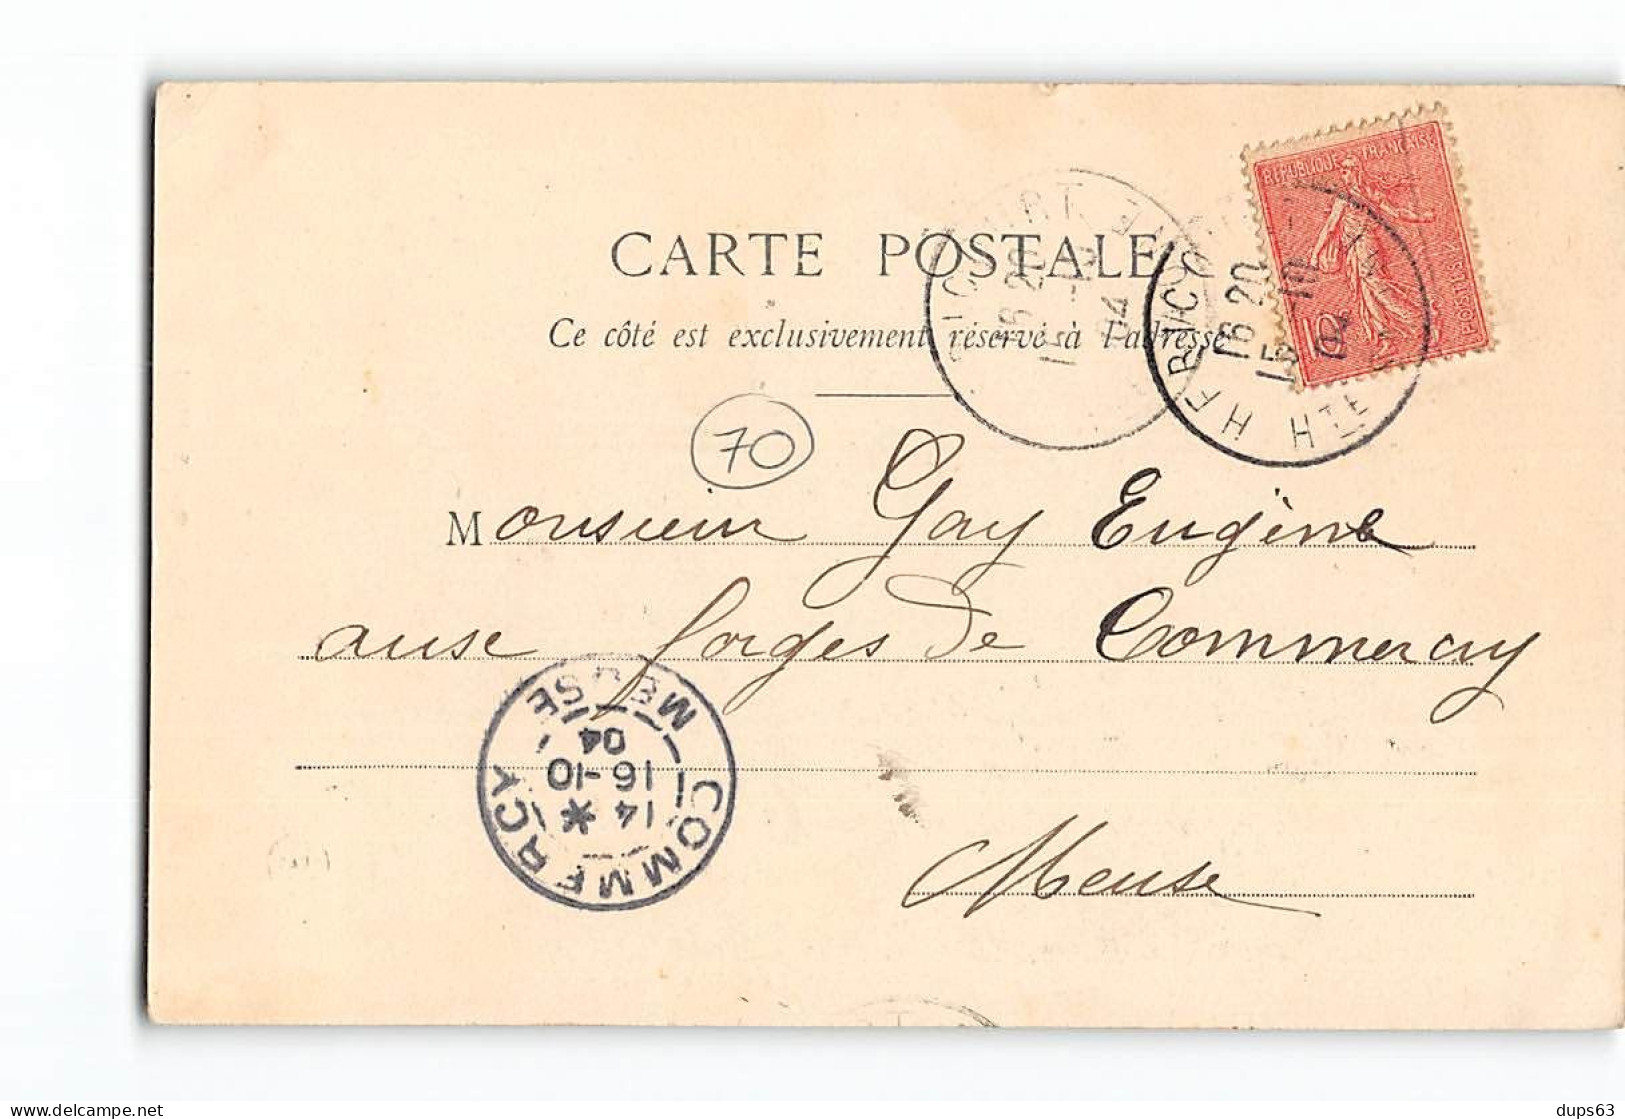 CARTE POSTALE
Ce côté est exclusivement réservé à l'adresse
REPUBLIQUE FRANÇAISE
POSTES
10
16 20
15 -10
04
HERICOURT
HTE
16 20
15
04
70
Monsieur Gay Eugène
aux forges de Commercy
Meuse
COMMERCY
MEUSE
14 *
16-10
04
dups63